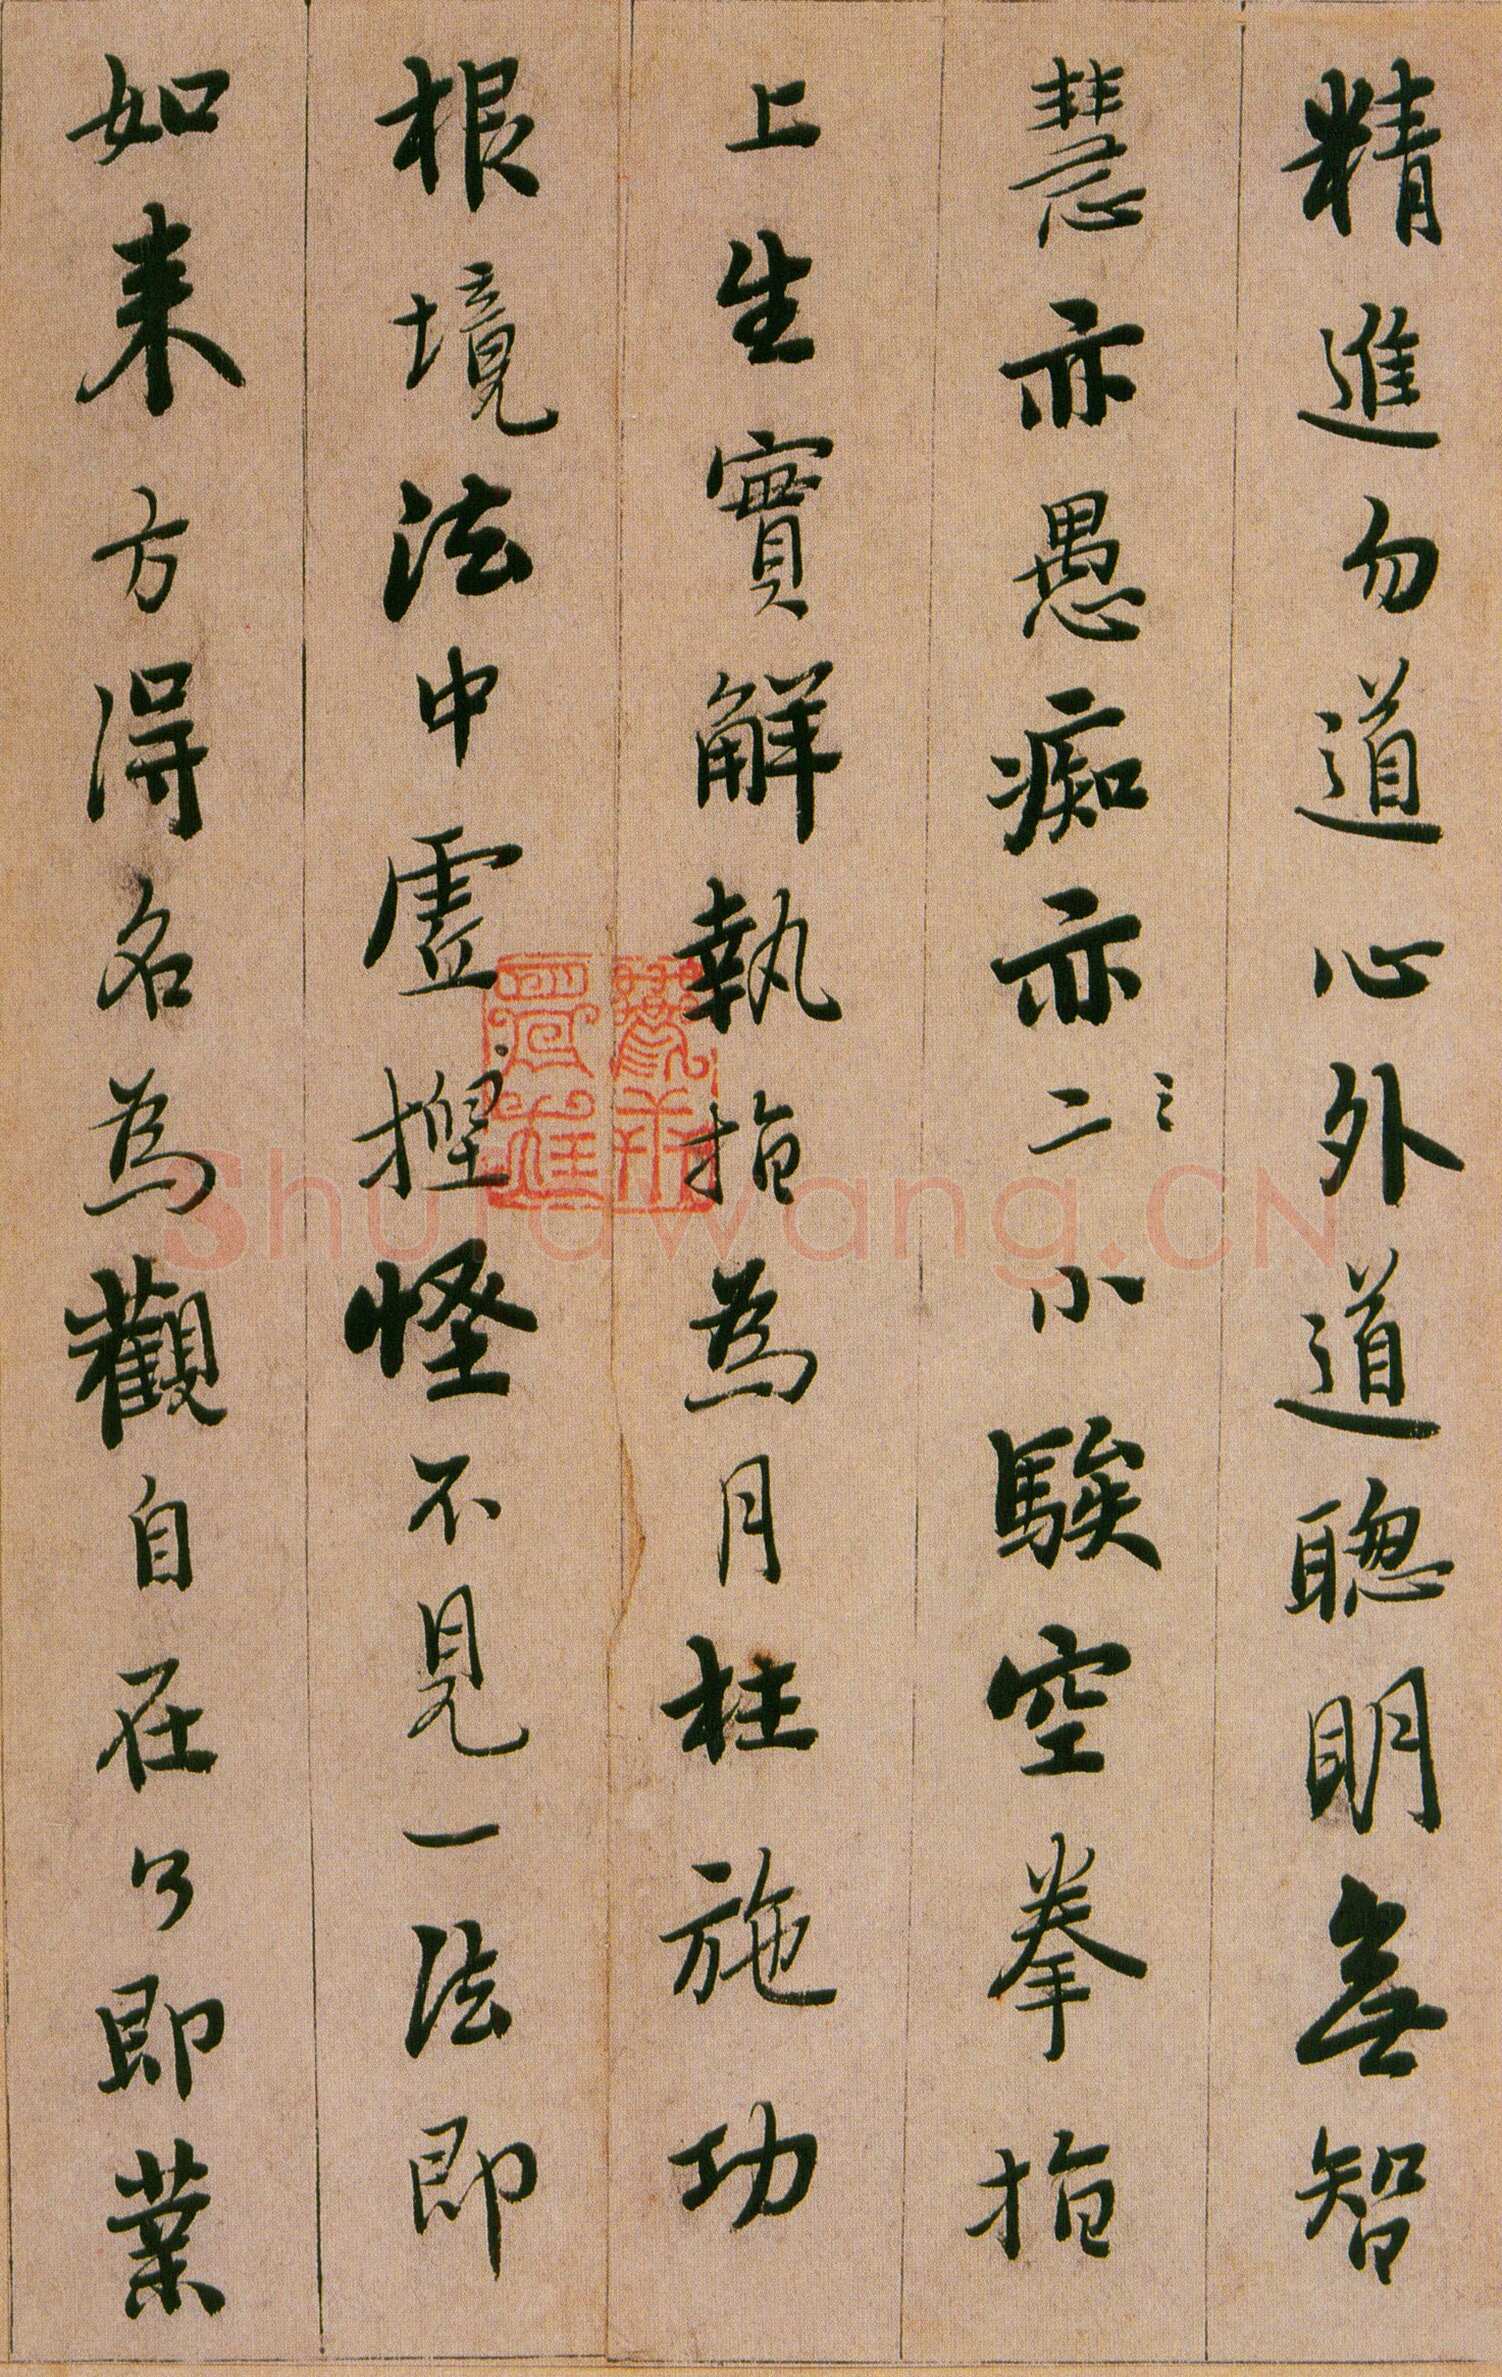 精進勿道心外道聰明無智
慧亦愚癡亦二小騃空拳指
上生實解執指為月枉施功
根境法中虛揑怪不見一法即
如來方得名為觀自在了即業
Shufawang.CN